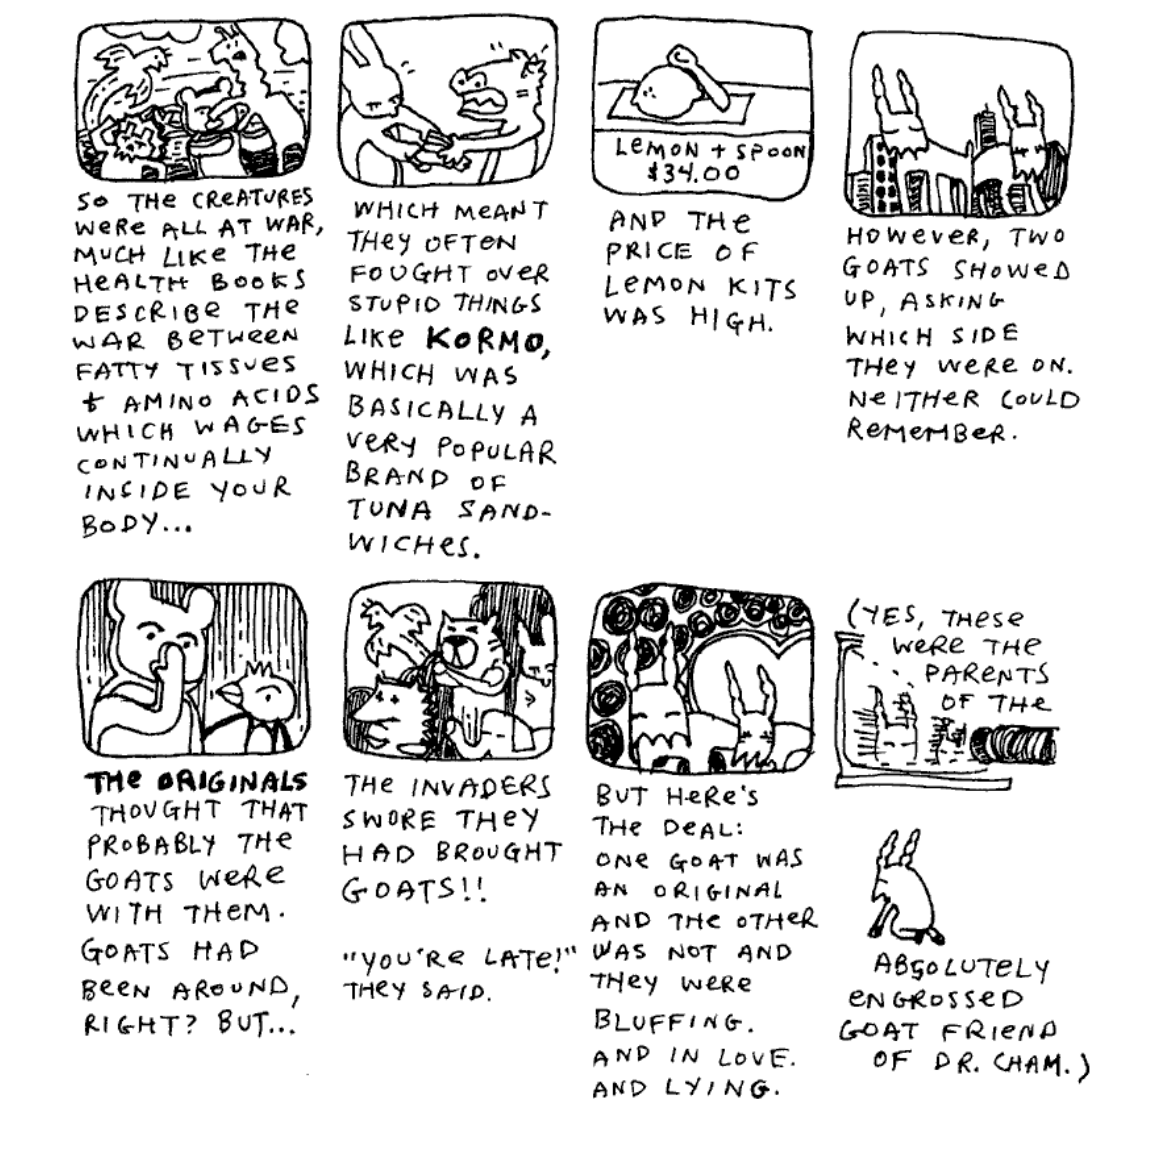 SO THE CREATURES
WERE ALL AT WAR,
MUCH LIKE THE
HEALTH BOOKS
DESCRIBE THE
WAR BETWEEN
FATTY TISSUES
+ AMINO ACIDS
WHICH WAGES
CONTINUALLY
INSIDE YOUR
BODY...
WHICH MEANT
THEY OFTEN
FOUGHT OVER
STUPID THINGS
LIKE KORMO,
WHICH WAS
BASICALLY A
VERY POPULAR
BRAND OF
TUNA SAND-
WICHES.
LEMON + SPOON
$34.00
AND THE
PRICE OF
LEMON KITS
WAS HIGH.
HOWEVER, TWO
GOATS SHOWED
UP, ASKING
WHICH SIDE
THEY WERE ON.
NEITHER COULD
REMEMBER.
THE ORIGINALS
THOUGHT THAT
PROBABLY THE
GOATS WERE
WITH THEM.
GOATS HAD
BEEN AROUND,
RIGHT? BUT...
THE INVADERS
SWORE THEY
HAD BROUGHT
GOATS!!
"YOU'RE LATE!"
THEY SAID.
BUT HERE'S
THE DEAL:
ONE GOAT WAS
AN ORIGINAL
AND THE OTHER
WAS NOT AND
THEY WERE
BLUFFING.
AND IN LOVE.
AND LYING.
(YES, THESE
WERE THE
PARENTS
OF THE
ABSOLUTELY
ENGROSSED
GOAT FRIEND
OF DR. CHAM.)